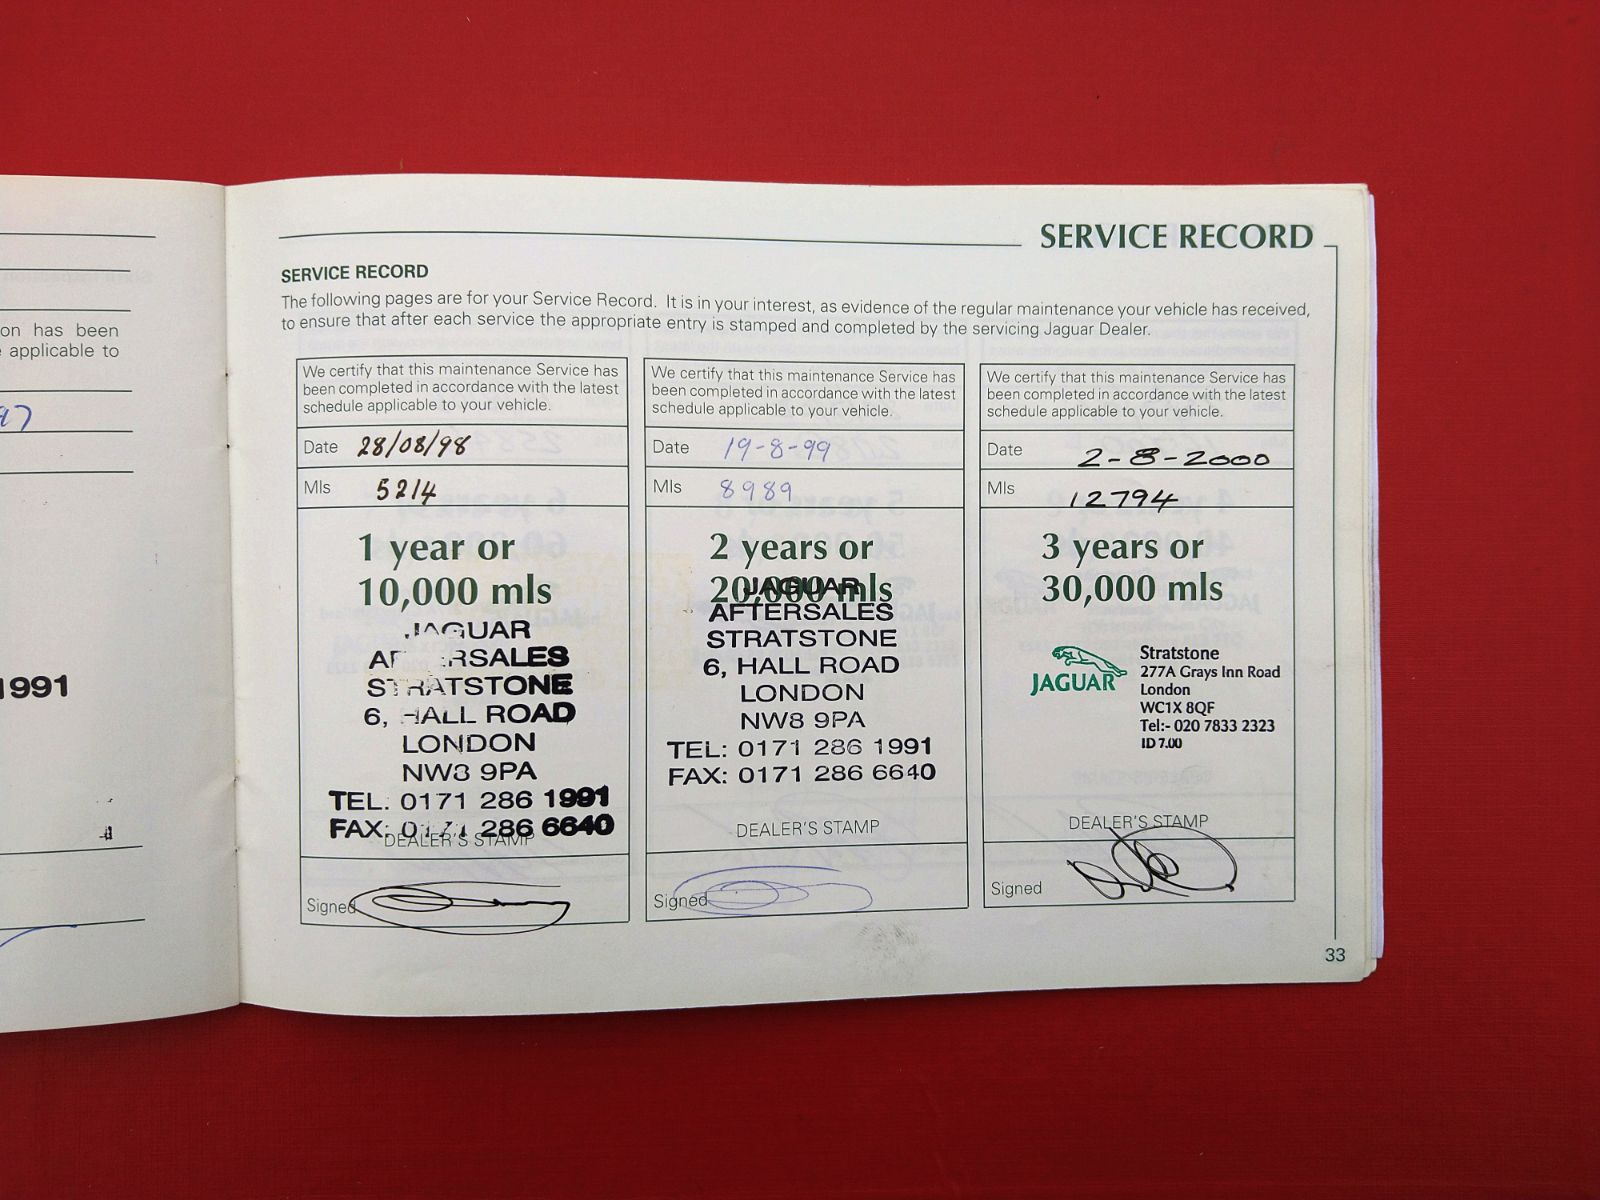 on has been
applicable to
97
1991
SERVICE RECORD
SERVICE RECORD
The following pages are for your Service Record. It is in your interest, as evidence of the regular maintenance your vehicle has received,
to ensure that after each service the appropriate entry is stamped and completed by the servicing Jaguar Dealer.
We certify that this maintenance Service has
been completed in accordance with the latest
schedule applicable to your vehicle.
Date 28/08/98
Mls 5214
1 year or
10,000 mls
JAGUAR
AFTERSALES
STRATSTONE
6, HALL ROAD
LONDON
NW8 9PA
TEL: 0171 286 1991
FAX: 0171 286 6640
DEALER'S STAMP
Signed
We certify that this maintenance Service has
been completed in accordance with the latest
schedule applicable to your vehicle.
Date 19-8-99
Mls 8989
2 years or
20,000 mls
JAGUAR
AFTERSALES
STRATSTONE
6, HALL ROAD
LONDON
NW8 9PA
TEL: 0171 286 1991
FAX: 0171 286 6640
DEALER'S STAMP
Signed
We certify that this maintenance Service has
been completed in accordance with the latest
schedule applicable to your vehicle.
Date 2-8-2000
Mls 12794
3 years or
30,000 mls
JAGUAR
Stratstone
277A Grays Inn Road
London
WC1X 8QF
Tel:- 020 7833 2323
ID 7.00
DEALER'S STAMP
Signed
33